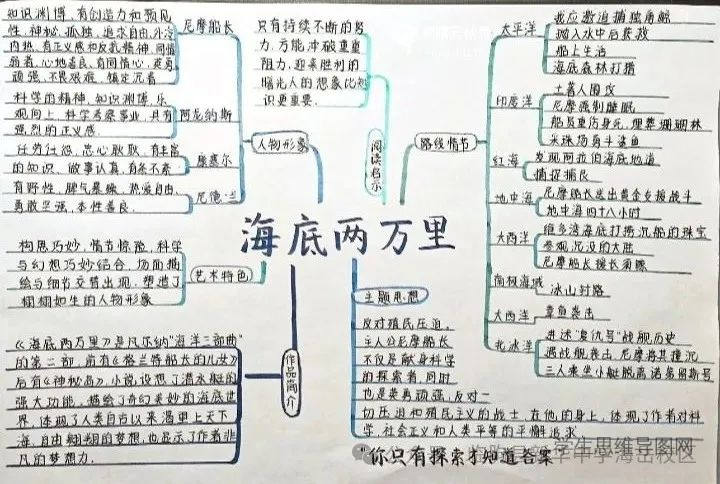 知识渊博，有创造力和预见
性，神秘，孤独，追求自由，外冷
内热，有正义感和反抗精神，同情
弱者，心地善良，有同情心，英勇
顽强，不畏艰难，镇定沉着
尼摩船长
科学的精神，知识渊博，乐
观向上，科学考察事业，具有
强烈的正义感.
阿龙纳斯
任劳任怨，忠心耿耿，有丰富
的知识，做事认真，有条不紊.
康塞尔
有野性，脾气暴躁，热爱自由，
勇敢坚强，本性善良.
尼德·兰
人物形象
只有持续不断的努
力，方能冲破重重
阻力，迎来胜利的
曙光人的想象比知
识更重要.
阅读启示
路线情节
太平洋
我应邀追捕独角鲸
掷入水中后获救
船上生活
海底森林打猎
印度洋
土著人围攻
尼摩强制睡眠
船员重伤身死，埋葬珊瑚林
采珠场勇斗鲨鱼
红海
发现阿拉伯海底地道
捕捉捕良
地中海
尼摩船长送出黄金支援战斗
地中海四十八小时
大西洋
维多湾海底打捞沉船的珠宝
参观沉没的大陆
尼摩船长搜长须鲸
南极海域
冰山封路
大西洋
章鱼袭击
北冰洋
讲述"复仇号"战舰历史
遇战舰袭击，尼摩将其撞沉
三人乘坐小艇脱离诺第留斯号
海底两万里
构思巧妙，情节惊险，科学
与幻想巧妙结合，场面描
绘与细节交替出现，塑造了
栩栩如生的人物形象
艺术特色
《海底两万里》是凡尔纳"海洋三部曲"
的第二部，前有《格兰特船长的儿女》
后有《神秘岛》，小说设想了潜水艇的
强大功能，描绘了奇幻美妙的海底世
界，体现了人类自古以来渴望上天下
海、自由翱翔的梦想，也显示了作者非
凡的梦想力.
作品简介
主题思想
反对殖民压迫，
主人公尼摩船长
不仅是献身科学
的探索者，同时
也是英勇顽强，反对一
切压迫和殖民主义的战士，在他的身上，体现了作者对科
学，社会正义和人类平等的不懈追求
"你只有探索才知道答案"
学生思维导图网
中学海岳校区